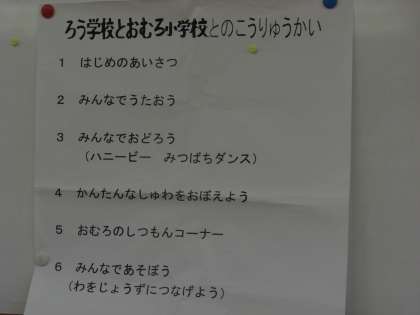 ろう学校とおむろ小学校とのこうりゅうかい
1 はじめのあいさつ
2 みんなでうたおう
3 みんなでおどろう
（ハニービー みつばちダンス）
4 かんたんなしゅわをおぼえよう
5 おむろのしつもんコーナー
6 みんなであそぼう
（わをじょうずにつなげよう）